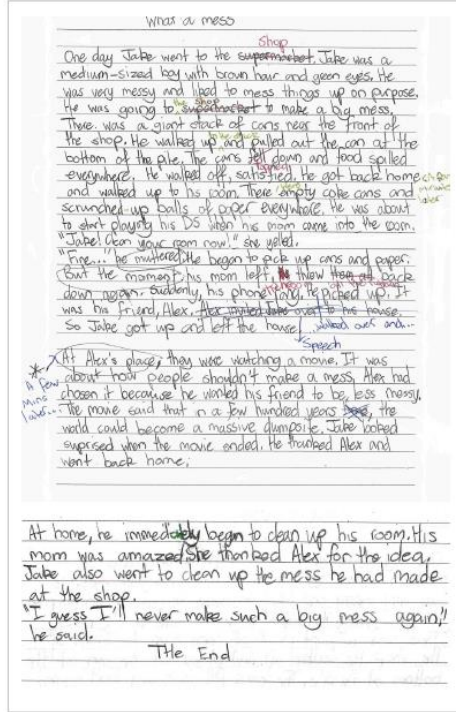 What a mess
shop
One day Jake went to the supermarket. Jake was a
medium-sized boy with brown hair and green eyes. He
was very messy and liked to mess things up on purpose.
the shop
He was going to supermarket to make a big mess.
There was a giant stack of cans near the front of
the shop. He walked up and pulled out the can at the
bottom of the pile. The cans fell down and food spilled
everywhere. He walked off, satisfied. He got back home
and walked up to his room. There were empty coke cans and
scrunched up balls of paper everywhere. He was about
to start playing his DS when his mom came into the room.
"Jake! Clean your room now!" she yelled.
"Fine..." he muttered. He began to pick up cans and paper.
But the moment his mom left, he threw them at back
down again. Suddenly, his phone rang. He picked up. It
was his friend, Alex. Alex invited Jake over to his house.
So Jake got up and left the house
...walked over and...
Speech
At Alex's place, they were watching a movie. It was
about how people shouldn't make a mess. Alex had
A few
mins
later...
chosen it because he wanted his friend to be less messy.
The movie said that in a few hundred years, the
world could become a massive dumpsite. Jake looked
suprised when the movie ended. He thanked Alex and
went back home.
At home, he immediately began to clean up his room. His
mom was amazed. She thanked Alex for the idea.
Jake also went to clean up the mess he had made
at the shop.
"I guess I'll never make such a big mess again,"
he said.
THe End